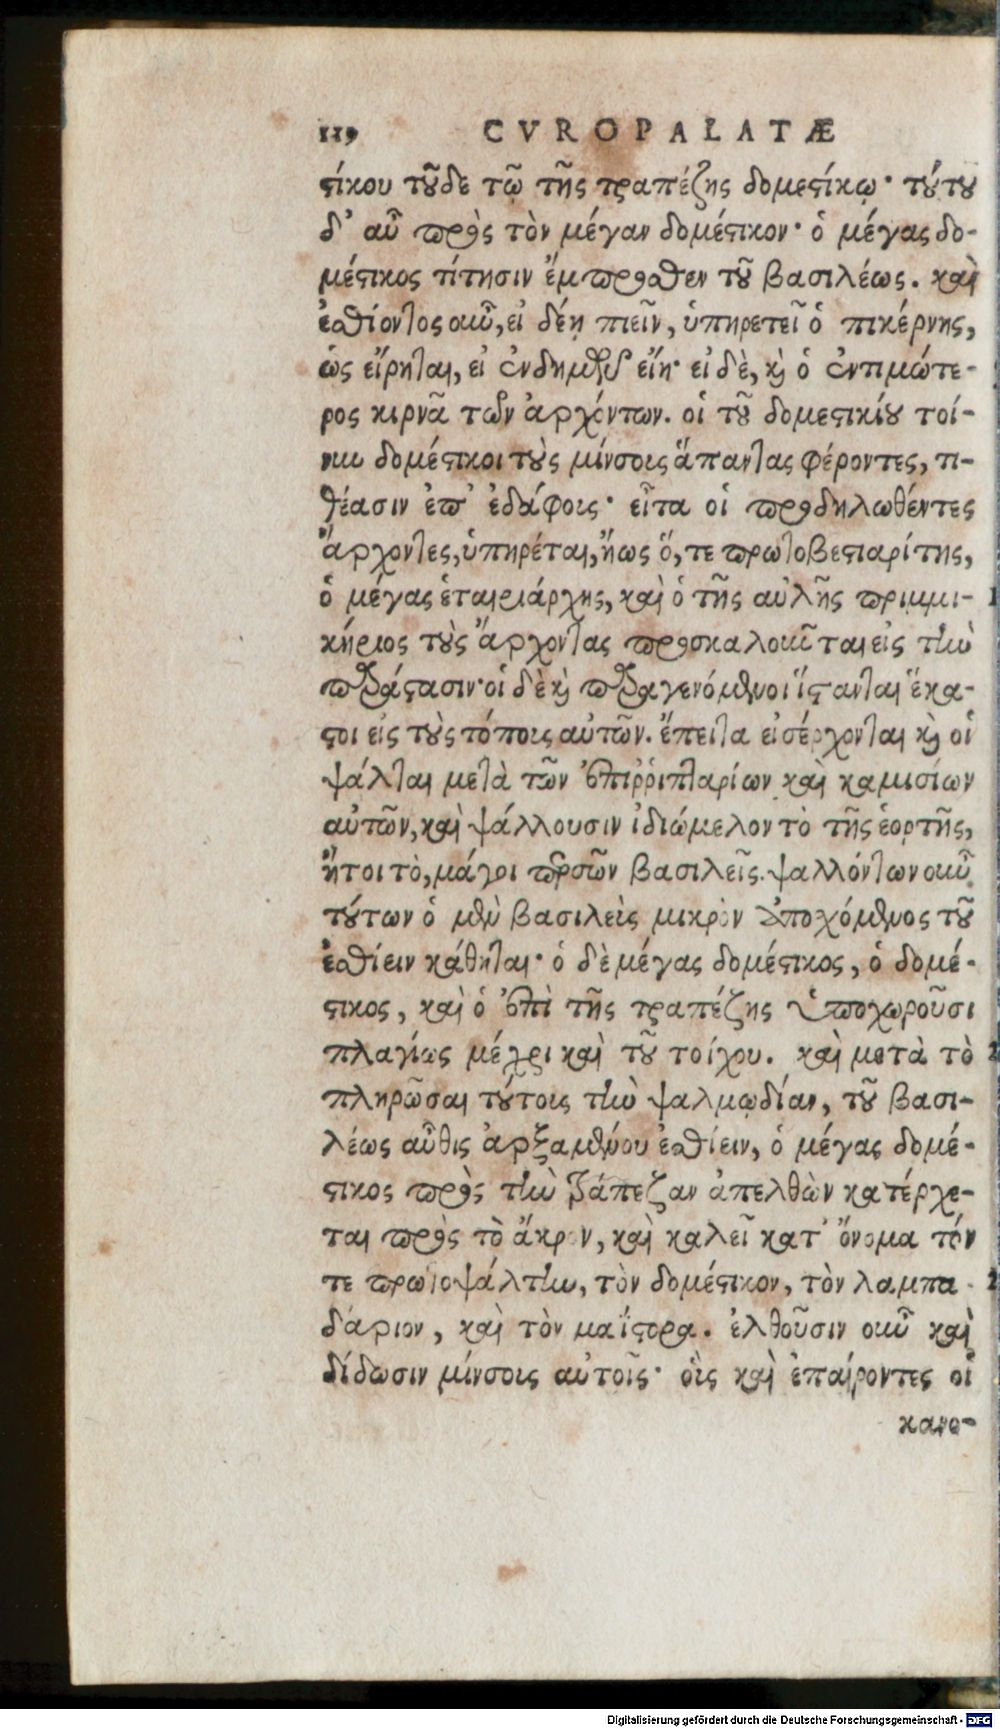 119 CVROPALATÆ
ϛίκου τȣ͂δε τῷ τῆς τραπέζης δομεϛίκῳ· τȣ́τȣ
δ' αὖ πρὸς τὸν μέγαν δομέϛικον· ὁ μέγας δο-
μέϛικος τίτησιν ἔμπροσθεν τȣ͂ βασιλέως. καὶ
ἐσθίοντος οὖν, εἰ δέῃ πιεῖν, ὑπηρετεῖ ὁ πικέρνης,
ὡς εἴρηται, εἰ ἐνδημῶν εἴη· εἰ δὲ, κὶ ὁ ἐντιμώτε-
ρος κιρνᾶ τῶν ἀρχόντων. οἱ τȣ͂ δομεϛικίȣ τοί-
νυν δομέϛικοι τȣ̀ς μίνσοις ἅπαντας φέροντες, τι-
θέασιν ἐπ' ἐδάφοις· εἶτα οἱ προδηλωθέντες
ἄρχοντες, ὑπηρέται, ἤως ὅ, τε πρωτοβεϛιαρίτης,
ὁ μέγας ἑταιριάρχης, καὶ ὁ τῆς αὐλῆς πριμμι-
κήριος τȣ̀ς ἄρχοντας προσκαλοῦνται εἰς τὴν
παράϛασιν· οἱ δὲ κὶ παραγενόμενοι ἵϛανται ἕκα-
ϛοι εἰς τȣ̀ς τόποις αὐτῶν. ἔπειτα εἰσέρχονται κὶ οἱ
ψάλται μετὰ τῶν ἐπιῤῥιπταρίων καὶ καμισίων
αὐτῶν, καὶ ψάλλουσιν ἰδιώμελον τὸ τῆς ἑορτῆς,
ἤτοι τὸ, μάγοι περσῶν βασιλεῖς. ψαλλόντων οὖν
τȣ́των ὁ μὲν βασιλεὺς μικρὸν ἀποχόμενος τȣ͂
ἐσθίειν κάθηται· ὁ δὲ μέγας δομέϛικος, ὁ δομέ-
ϛικος, καὶ ὁ ἐπὶ τῆς τραπέζης ὑποχωροῦσι
πλαγίως μέχρι καὶ τȣ͂ τοίχου. καὶ μετὰ τὸ
πληρῶσαι τȣ́τοις τὴν ψαλμῳδίαν, τȣ͂ βασι-
λέως αὖθις ἀρξαμένου ἐσθίειν, ὁ μέγας δομέ-
ϛικος πρὸς τὴν τράπεζαν ἀπελθὼν κατέρχε-
ται πρὸς τὸ ἄκρον, καὶ καλεῖ κατ' ὄνομα τόν
τε πρωτοψάλτην, τὸν δομέϛικον, τὸν λαμπα-
δάριον, καὶ τὸν μαΐϛορα. ἐλθοῦσιν οὖν καὶ
δίδωσιν μίνσοις αὐτοῖς· οἷς καὶ ἐπαίροντες οἱ
κανο-
Digitalisierung gefördert durch die Deutsche Forschungsgemeinschaft - DFG